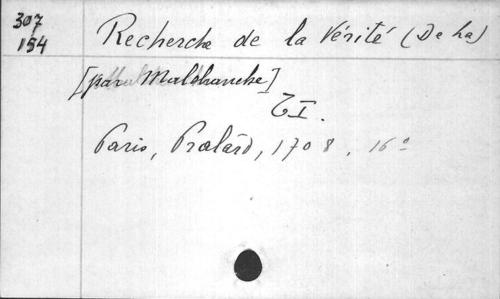 307
154
Recherche de la Vérité (De la)
[par Malebranche]
T I.
Paris, Pralard, 1708. 16º